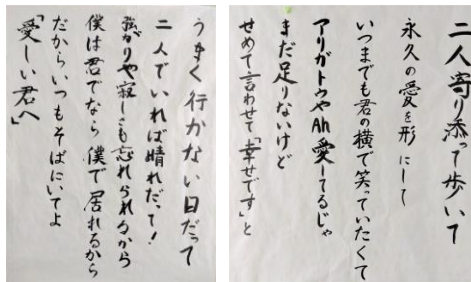 二人寄り添って歩いて
永久の愛を形にして
いつまでも君の横で笑っていたくて
アリガトウやAh愛してるじゃ
まだ足りないけど
せめて言わせて「幸せです」と
うまく行かない日だって
二人でいれば晴れだって!
強がりや寂しさも忘れられるから
僕は君でなら僕で居れるから
だからいつもそばにいてよ
「愛しい君へ」